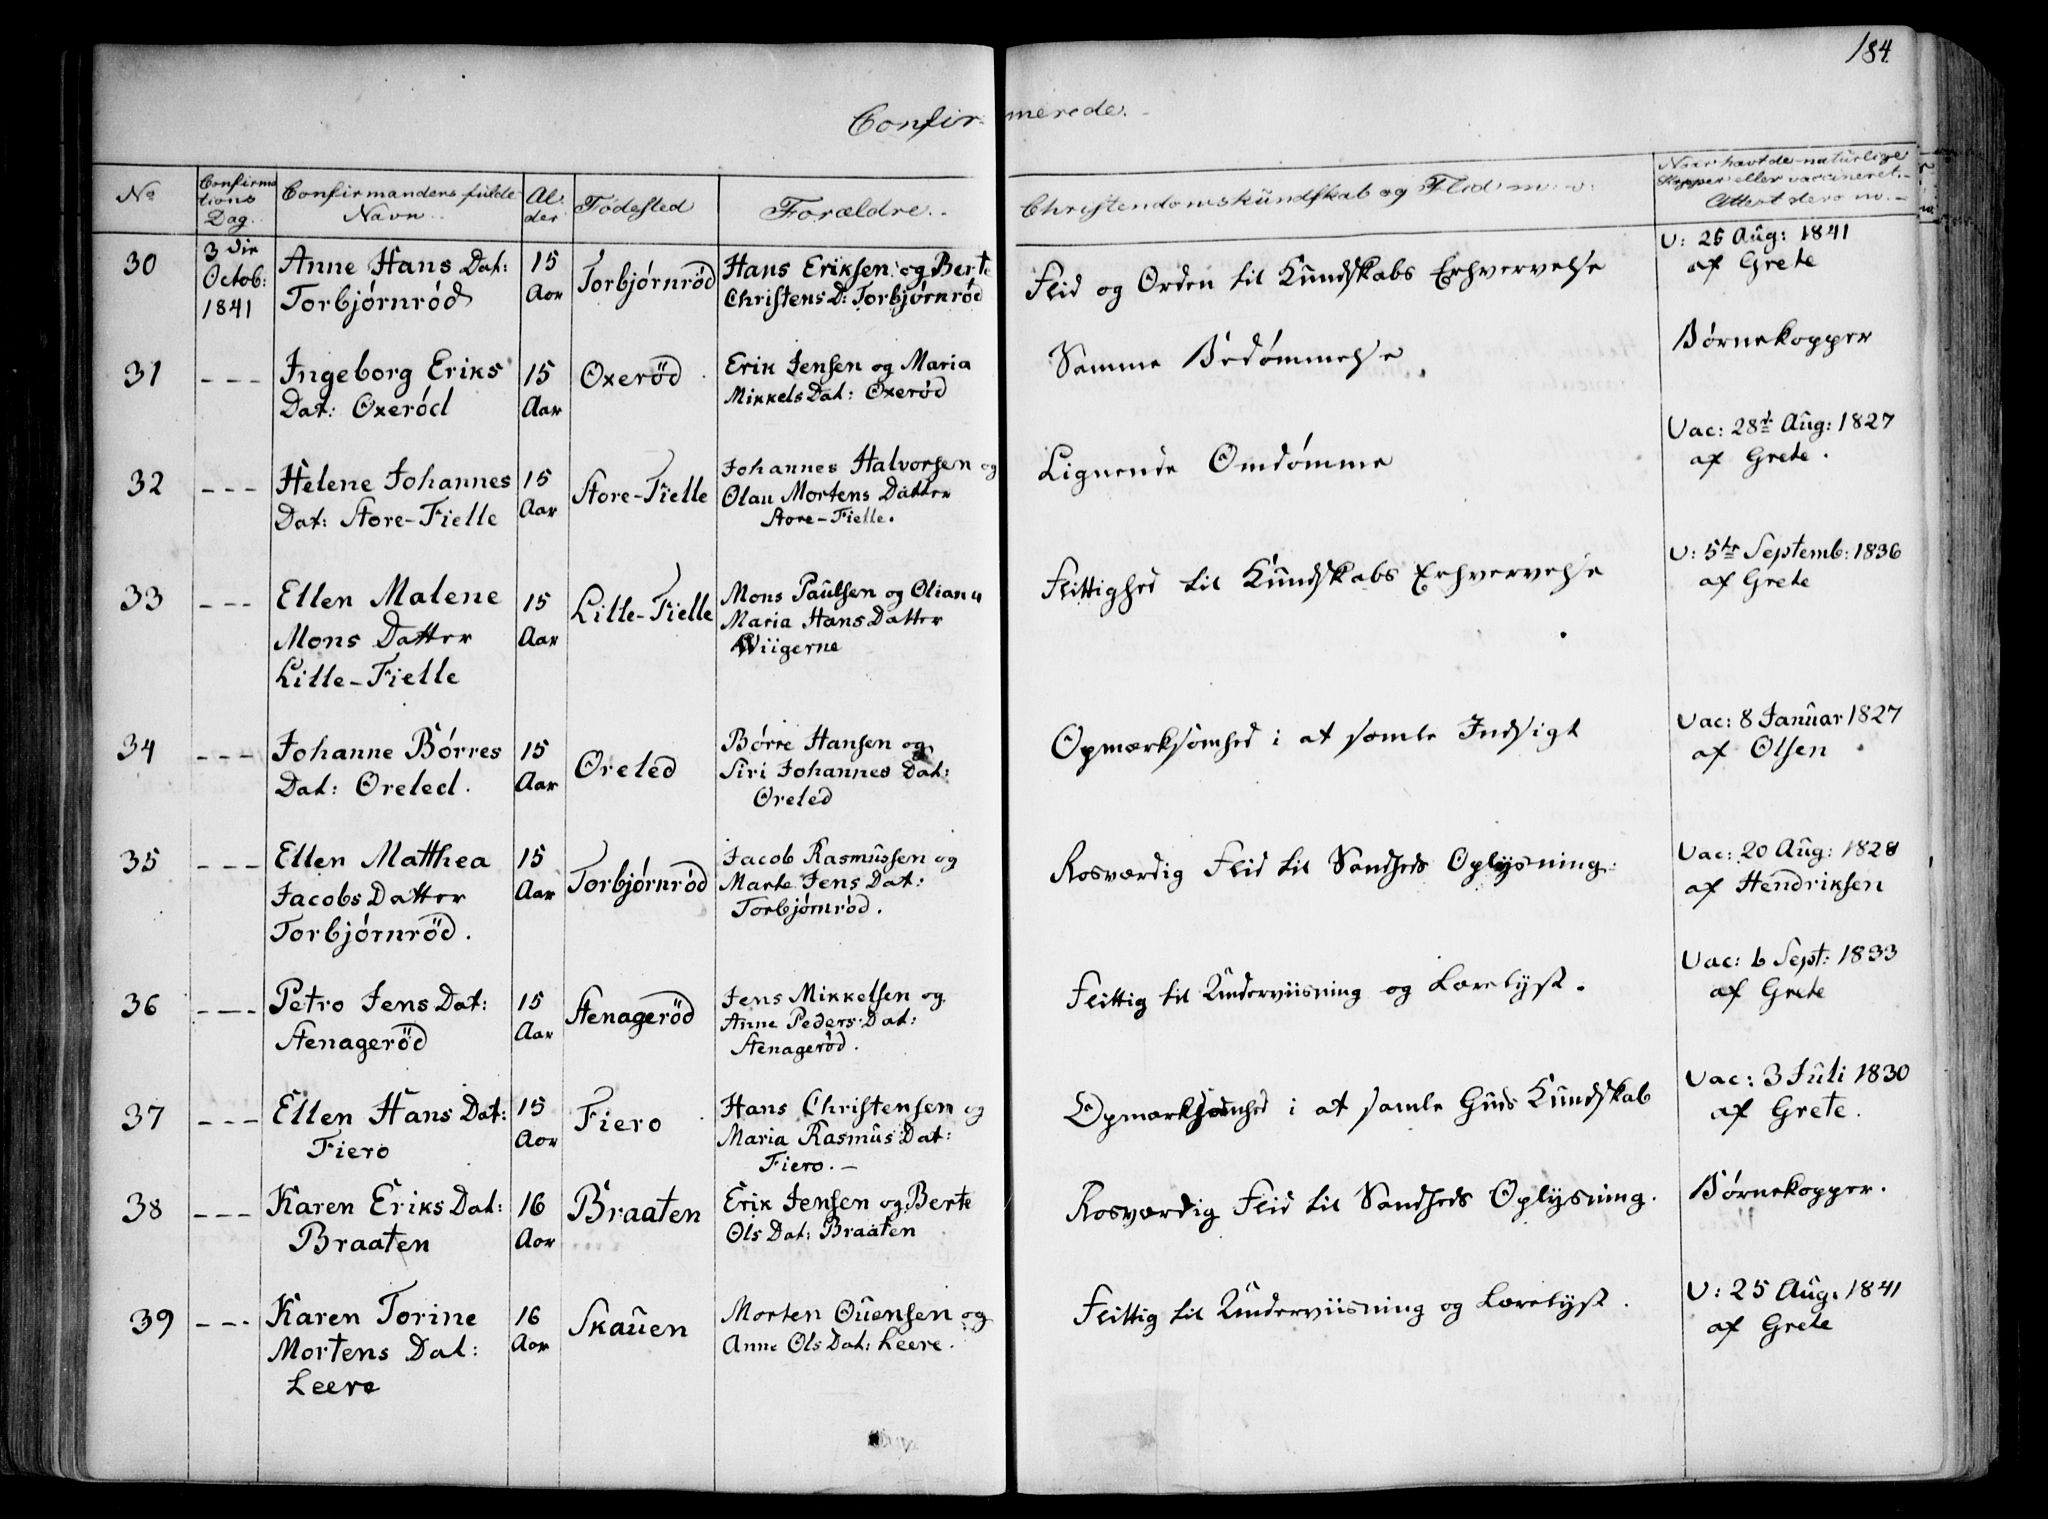 184.
Confirmerede.
No
Confirmations Dag.
Confirmandens fulde Navn.
Alder
Födested
Forældre.
Christendomskundskab og Flid m. v.
Naar havt de naturlige Kopper eller vaccineret. Attest derom.
30
3die Octob: 1841
Anne Hans Dat:
Torbjørnröd
15 Aar
Torbjørnröd
Hans Eriksen og Berte
Christens D: Torbjørnröd
Flid og Orden til Kundskabs Erhvervelse
V: 25 Aug: 1841
af Grete
31
---
Ingeborg Eriks
Dat: Oxeröd
15 Aar
Oxeröd
Erik Jensen og Maria
Mikkels Dat: Oxeröd
Samme Bedømmelse.
Børnekopper
32
---
Helene Johannes
Dat: Store-Fielle
15 Aar
Store-Fielle
Johannes Halvorsen og
Olau Mortens Datter
Store-Fielle.
Lignende Omdømme
Vac: 28d Aug: 1827
af Grete.
33
---
Ellen Malene
Mons Datter
Lille-Fielle
15 Aar
Lille-Fielle
Mons Paulsen og Oliana
Maria Hans Datter
Wiigerne
Flittighed til Kundskabs Erhvervelse
V: 5te Septemb: 1836
af Grete
34
---
Johanne Börres
Dat: Öreled.
15 Aar
Öreled
Börre Hansen og
Siri Johannes Dat:
Öreled
Opmærksomhed i at samle Indsigt
Vac: 8 Januar 1827
af Olsen
35
---
Ellen Matthea
Jacobs Datter
Torbjørnröd.
15 Aar
Torbjørnröd
Jacob Rasmussen og
Marte Jens Dat:
Torbjørnröd.
Rosværdig Flid til Sandheds Oplysning.
Vac: 20 Aug: 1828
af Hendriksen
36
---
Petro Jens Dat:
Stenageröd
15 Aar
Stenageröd
Jens Mikkelsen og
Anne Peders Dat:
Stenageröd.
Flittig til Underviisning og Lærelyst.
Vac: 6 Sept: 1833
af Grete
37
---
Ellen Hans Dat:
Fiero
15 Aar
Fiero
Hans Christensen og
Maria Rasmus Dat:
Fiero.-
Opmærksomhed i at samle Guds Kundskab
Vac: 3 Juli 1830
af Grete.
38
---
Karen Eriks Dat:
Braaten
16 Aar
Braaten
Erik Jensen og Berte
Ols Dat: Braaten
Rosværdig Flid til Sandheds Oplysning.
Børnekopper.
39
---
Karen Torine
Mortens Dat:
Leere
16 Aar
Skauen
Morten Ouensen og
Anne Ols Dat: Leere.
Flittig til Underviisning og Lærelyst.
V: 25 Aug: 1841
af Grete